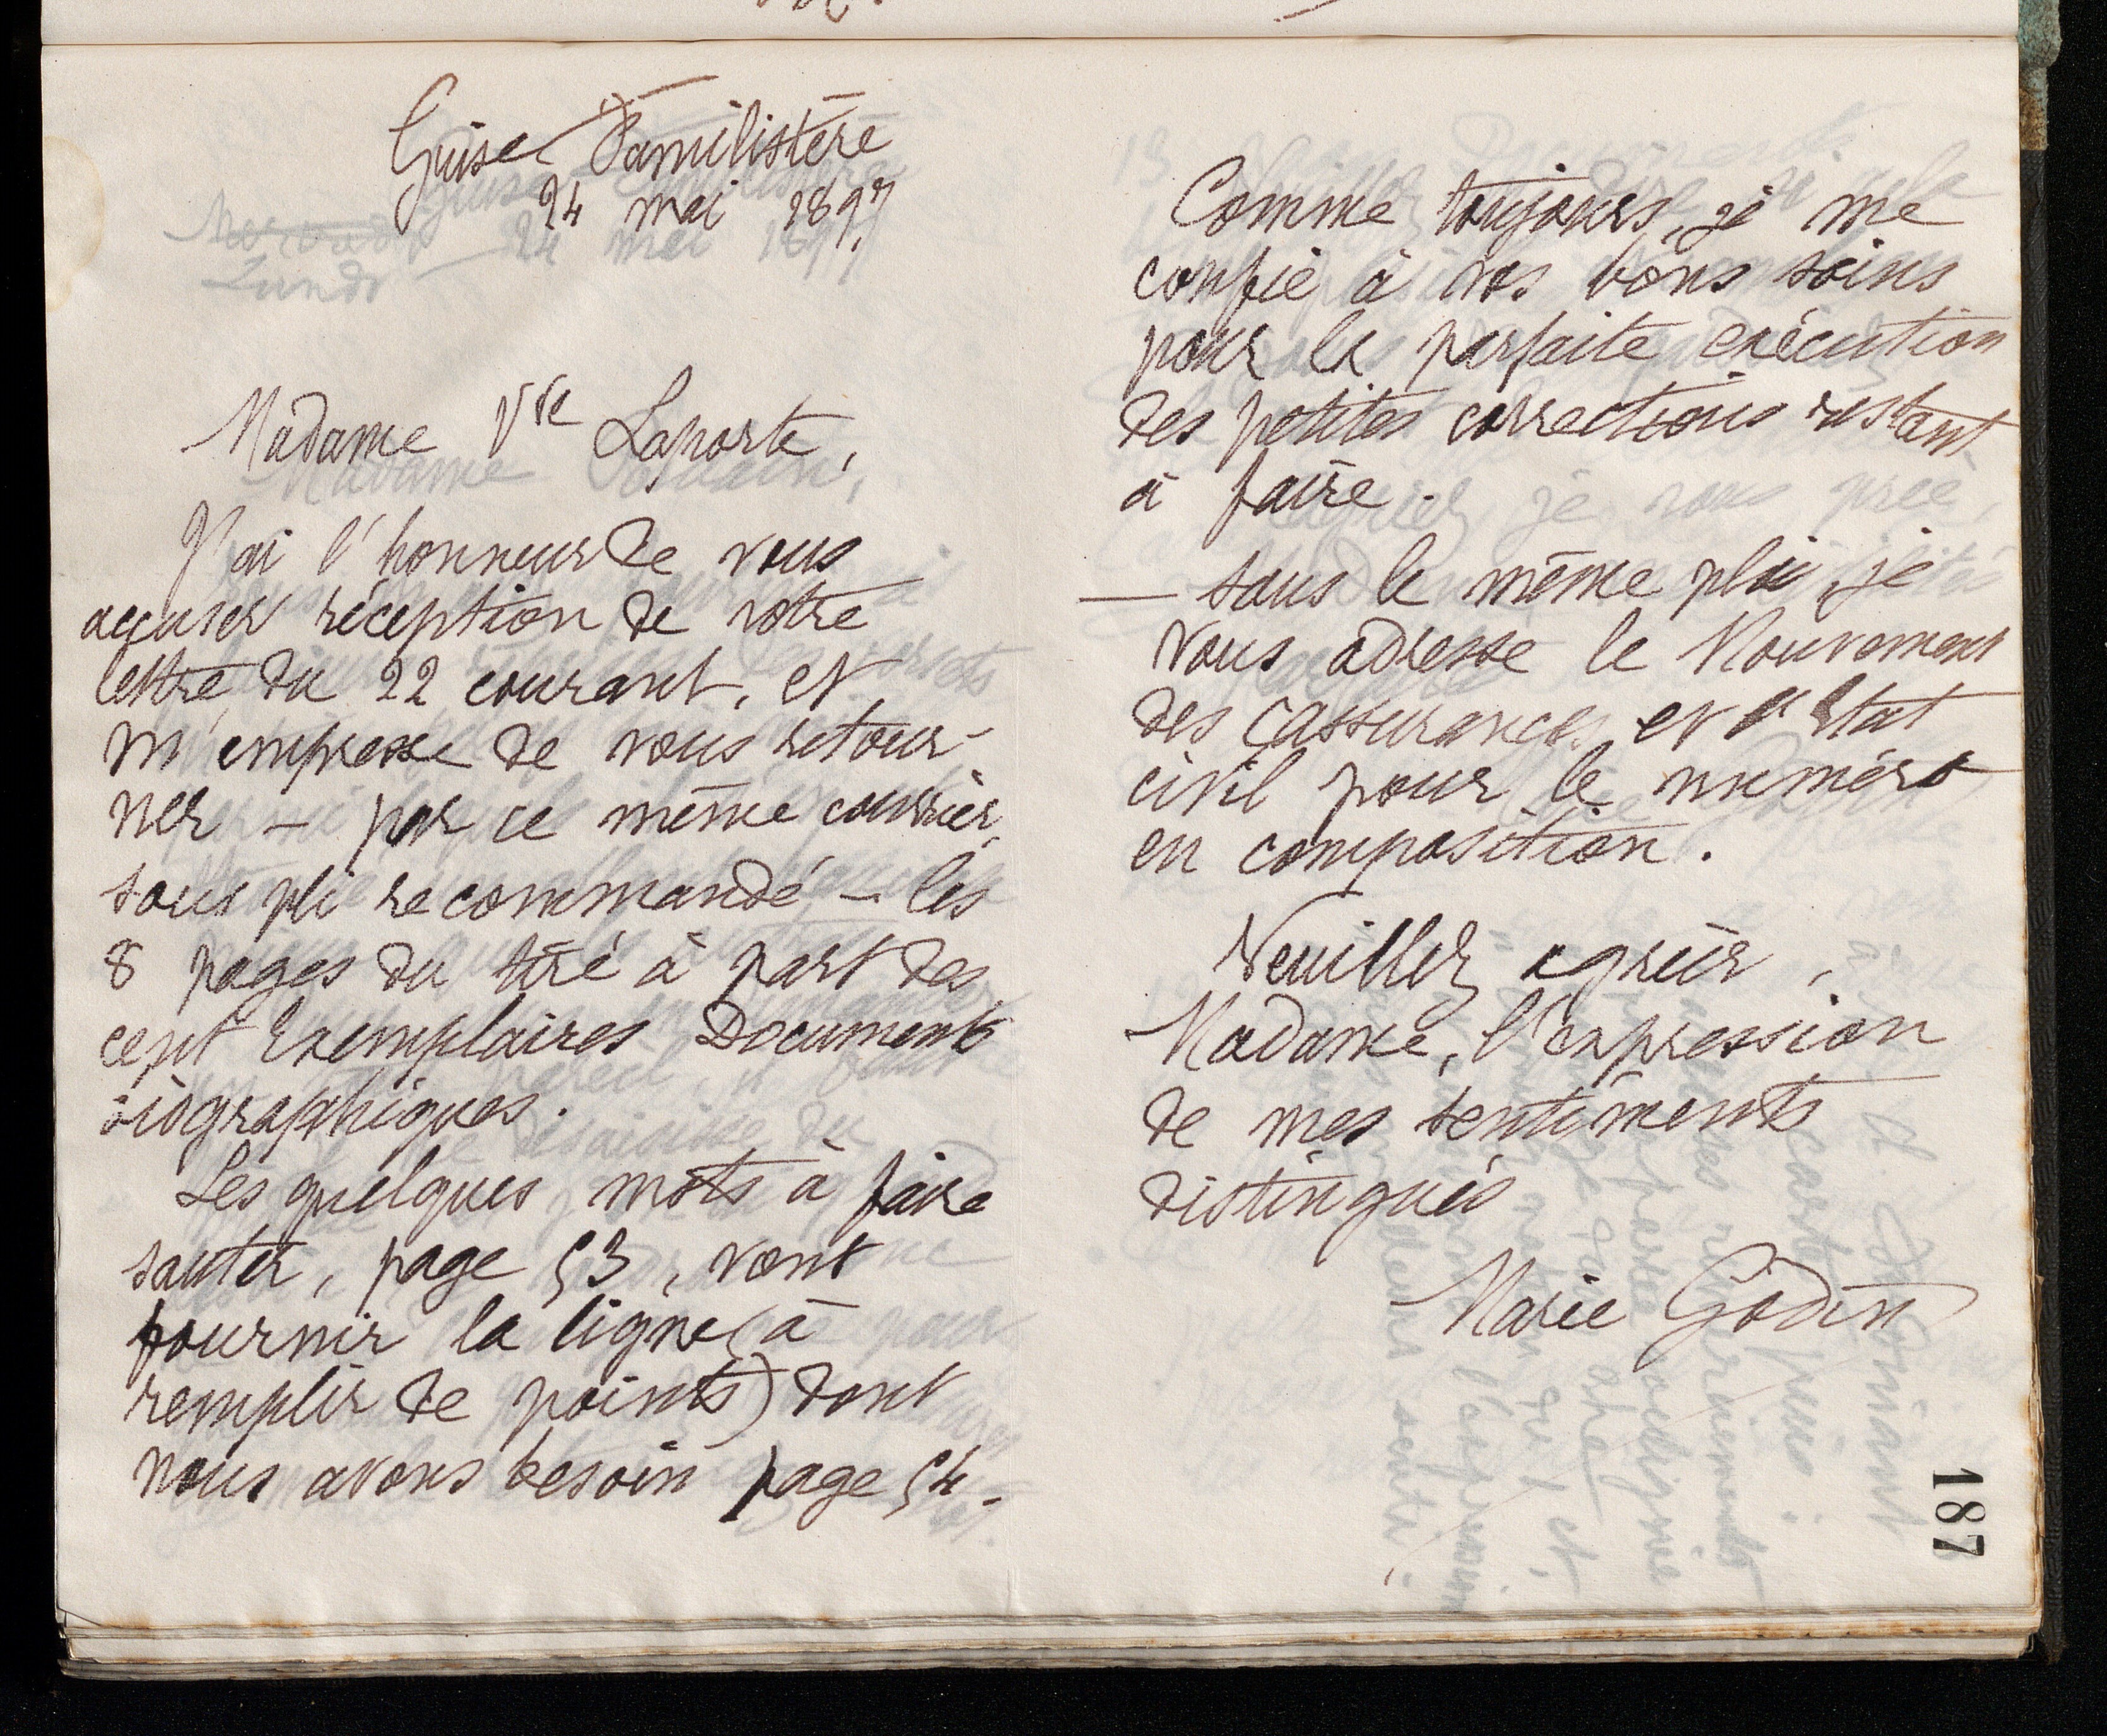 Guise Familistère
24 mai 1897
Madame Vve Laporte,
J'ai l'honneur de vous
accuser réception de votre
lettre du 22 courant, et
m'empresse de vous retour-
ner — par ce même courrier
sous pli recommandé — les
8 pages du tiré à part des
cept Exemplaires Documents
biographiques.
Les quelques mots à faire
sauter, page 53, vont
fournir la ligne (à
remplir de points) dont
nous avons besoin page 54.
Comme toujours, je me
confie à vos bons soins
pour la parfaite exécution
des petites corrections restant
à faire.
— sous le même pli, je
vous adresse le Mouvement
des assurances et l'Etat
civil pour le numéro
en composition.
Veuillez agréer,
Madame, l'expression
de mes sentiments
distingués
Marie Godin
187